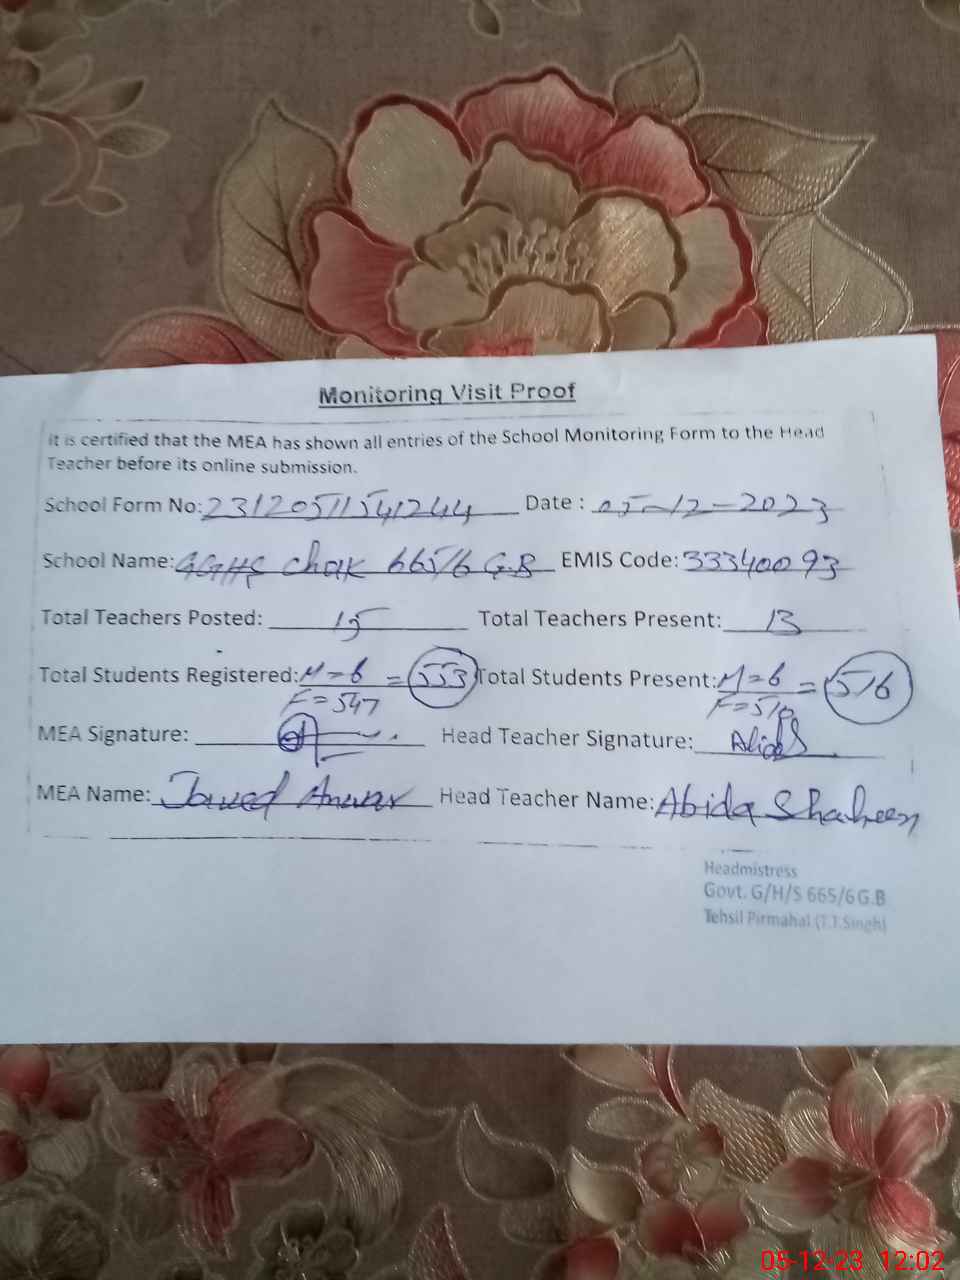 Monitoring Visit Proof
It is certified that the MEA has shown all entries of the School Monitoring Form to the Head
Teacher before its online submission.
School Form No: 23120511541244 Date : 05-12-2023
School Name: GGHS Chak 665/6 G.B EMIS Code: 33340093
Total Teachers Posted: 15 Total Teachers Present: 13
Total Students Registered: M=6 = 553 Total Students Present: M=6 = 516
F=547 F=510
MEA Signature: Head Teacher Signature: Abida
MEA Name: Javed Anwar Head Teacher Name: Abida Shaheen
Headmistress
Govt. G/H/S 665/6 G.B
Tehsil Pirmahal (T.T.Singh)
05-12-23 12:02